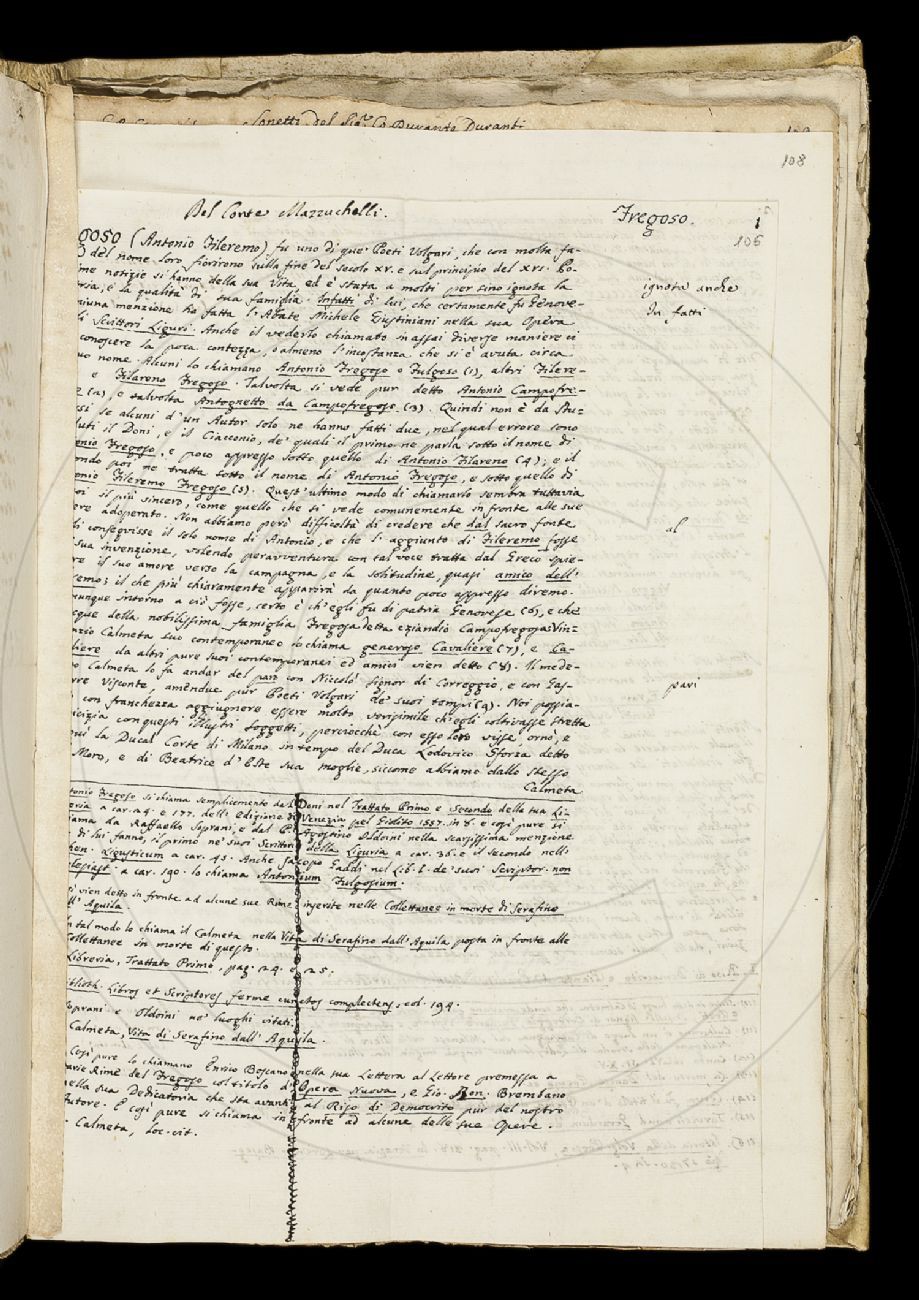 Sonetti del Sig.r Co Durante Duranti
108
Del Conte Mazzuchelli.
Fregoso.
1
106
goso (Antonio Fileremo) fu uno di que' Poeti Volgari, che con molta fa-
del nome loro fiorirono sulla fine del secolo XV. e sul principio del XVI. Po-
me notizie si hanno della sua Vita, ed è stata a molti per sino ignota la
ria, e la qualità di sua famiglia. Infatti di lui che certamente fu Genove-
iuna menzione ha fatta l'Abate Michele Giustiniani nella sua Opera
i Scrittori Liguri. Anche il vederlo chiamato in assai diverse maniere ci
conoscere la poca contezza, o almeno l'incostanza che si è avuta circa
uo nome. Alcuni lo chiamano Antonio Fregoso o Fulgoso (1), altri Filere-
e Filareno Fregoso. Talvolta si vede pur detto Antonio Campofre-
(2), e talvolta Antognetto da Campofregoso (3). Quindi non è da stu-
si se alcuni d'un Autor solo ne hanno fatti due, nel qual errore sono
uti il Doni, e il Ciacconio, de' quali il primo ne parla sotto il nome di
onio Fregoso, e poco appresso sotto quello di Antonio Filareno (4); e il
ondo poi ne tratta sotto il nome di Antonio Fregoso, e sotto quello di
onio Fileremo Fregoso (5). Quest'ultimo modo di chiamarlo sembra tuttavia
oi il più sincero, come quello che si vede comunemente in fronte alle sue
ere adoperato. Non abbiamo però difficoltà di credere che dal sacro fonte
i conseguisse il solo nome di Antonio, e che l'aggiunto di Fileremo fosse
sua invenzione, volendo peravventura con tal voce tratta dal Greco spie-
re il suo amore verso la campagna, e la solitudine, quasi amico dell'
remo; il che più chiaramente apparirà da quanto poco appresso diremo.
unque intorno a ciò fosse, certo è ch'egli fu di patria Genovese (6), e che
cque della nobilissima famiglia Fregosa detta eziandio Campofregosa: Vin-
nzio Calmeta suo contemporaneo lo chiama generoso Cavaliere (7), e Ca-
liere da altri pure suoi contemporanei ed amici vien detto (8). Il mede-
o Calmeta lo fa andar del pari con Niccolò Signor di Correggio, e con Gas-
rre Visconte, amendue pur Poeti Volgari de' suoi tempi (9). Noi possia-
con franchezza aggiugnere essere molto verisimile ch'egli coltivasse stretta
icizia con questi illustri soggetti, perciocchè con esso loro visse ornò, e
uì la Ducal Corte di Milano in tempo del Duca Lodovico Sforza detto
Moro, e di Beatrice d'Este sua moglie, siccome abbiamo dallo stesso
Calmeta
ignota anche
In fatti
al
pari
tonio Fregoso si chiama semplicemente dal Doni nel Trattato Primo e Secondo della sua Li-
eria a car. 24. e 177. dell'edizione di Venezia pel Giolito 1557. in 8. e così pure si
iama da Raffaello Soprani, e dal P. Agostino Oldoini nella scarsissima menzione
di lui fanno, il primo ne' suoi Scrittori della Liguria a car. 36. e il secondo nell'
hen. Ligusticum a car. 45. Anche Jacopo Gaddi nel Lib. I. de' suoi Scriptor. non
lesiast. a car. 190. lo chiama Antonium Fulgosium.
sì vien detto in fronte ad alcune sue Rime inserite nelle Collettanee in morte di Serafino
ll'Aquila.
n tal modo lo chiama il Calmeta nella Vita di Serafino dall'Aquila posta in fronte alle
ollettanee in morte di questo.
Libreria, Trattato Primo, pag. 24. e 25.
iblioth. Libros et Scriptores ferme cunctos complectens, col. 194.
oprani e Oldoini ne' luoghi citati.
Calmeta, Vita di Serafino dall'Aquila.
Così pure lo chiamano Enrico Boscano nella sua Lettera al Lettore premessa a
arie Rime del Fregoso col titolo di Opera Nuova, e Gio. Ron. Brembano
ella sua Dedicatoria che sta avanti al Riso di Democrito pur del nostro
Autore. E così pure si chiama in fronte ad alcune delle sue Opere.
Calmeta, loc. cit.